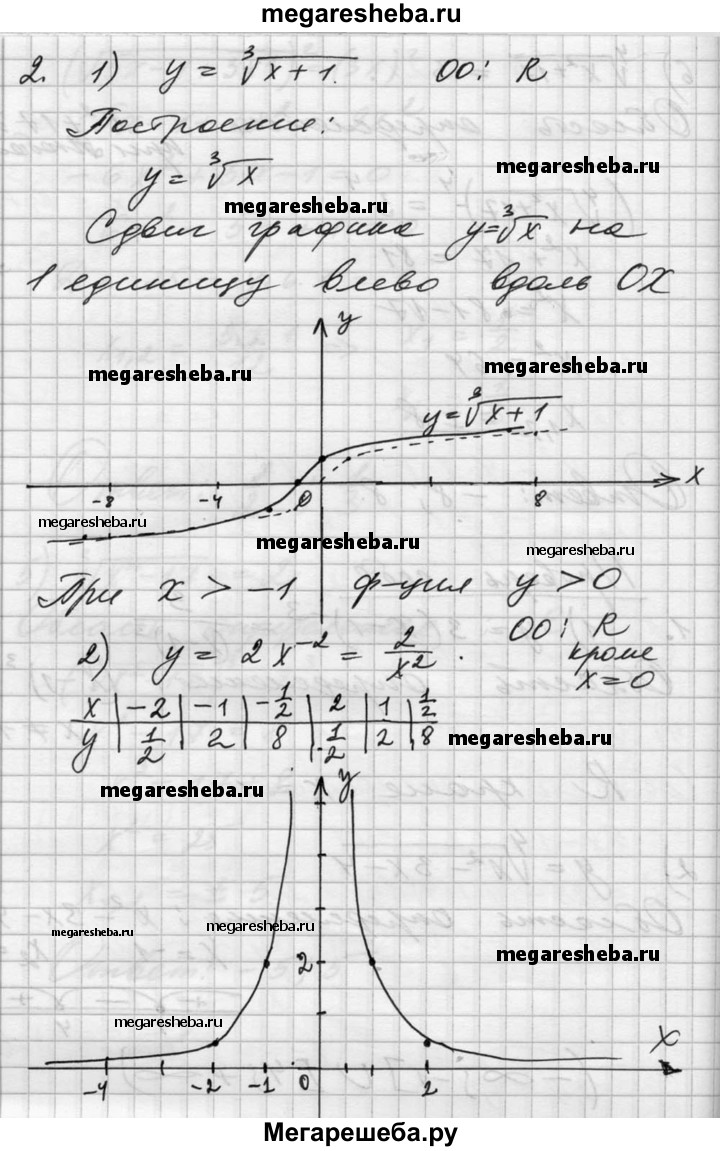 megaresheba.ru
2. 1) y = ∛(x + 1). ОО: R
Построение:
y = ∛x
megaresheba.ru
megaresheba.ru
Сдвиг графика y=∛x на
1 единицу влево вдоль OX
y
megaresheba.ru
megaresheba.ru
y=∛(x + 1)
-8 -4 0 8 x
megaresheba.ru
megaresheba.ru
megaresheba.ru
При x > -1 ф-ция y > 0
ОО: R
2) y = 2x⁻² = 2/x².
кроме
x=0
x | -2 | -1 | -1/2 | 2 | 1 | 1/2
y | 1/2 | 2 | 8 | 1/2 | 2 | 8
megaresheba.ru
megaresheba.ru
y
megaresheba.ru
megaresheba.ru
megaresheba.ru
2
megaresheba.ru
x
-4 -2 -1 0 2
Мегарешеба.ру